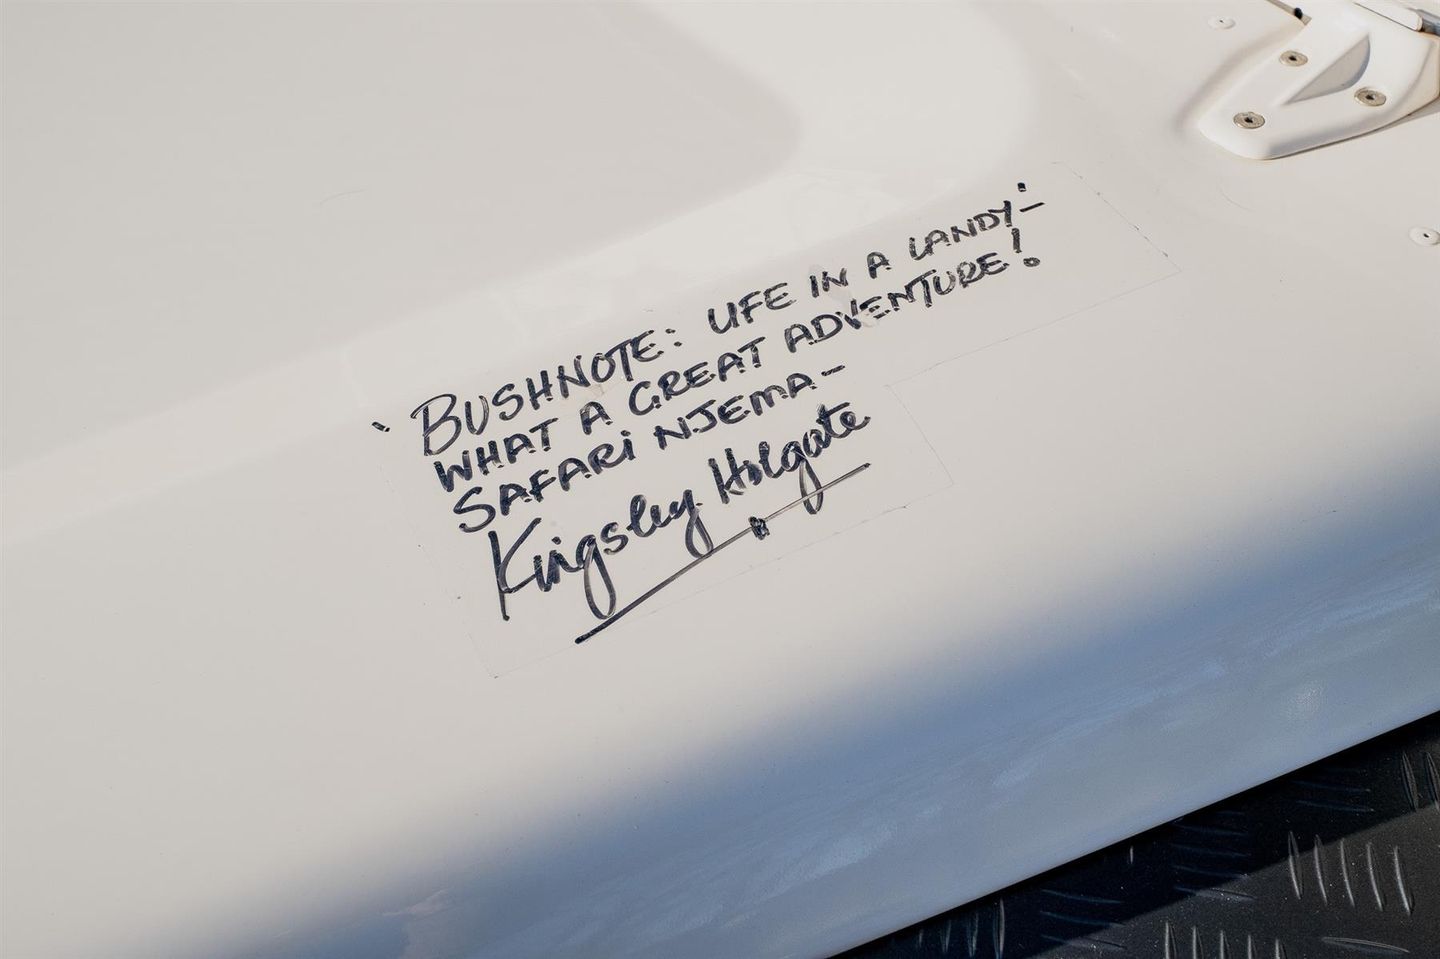 ` BUSHNOTE: LIFE IN A LANDY:-
WHAT A GREAT ADVENTURE!
SAFARI NJEMA-
Kingsley Holgate